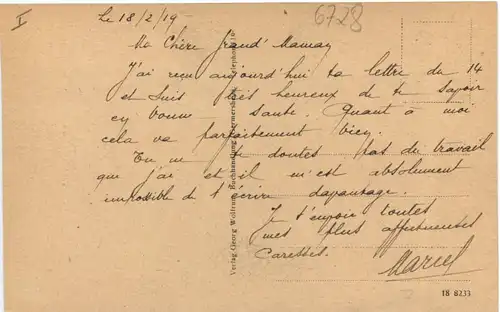 I
Le 18/2/19
6728
Ma Chère Grand' Maman
J'ai reçu aujourd'hui ta lettre du 14
et suis très heureux de te savoir
en bonne santé. Quant à moi
cela va parfaitement bien.
Tu ne te doutes pas du travail
que j'ai et il m'est absolument
impossible de t'écrire davantage.
Je t'envoie toutes
mes plus affectueuses
Caresses.
Marcel
Verlag Georg Wolfrum Buchhandlung Germersheim Telephon 16
18 8233